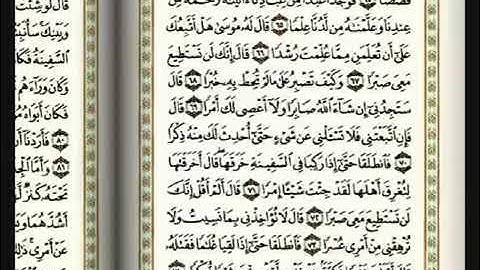 قَصَصًا ٦٤ فَوَجَدَا عَبْدًا مِّنْ عِبَادِنَآ ءَاتَيْنَٰهُ رَحْمَةً مِّنْ
عِندِنَا وَعَلَّمْنَٰهُ مِن لَّدُنَّا عِلْمًا ٦٥ قَالَ لَهُۥ مُوسَىٰ هَلْ أَتَّبِعُكَ
عَلَىٰٓ أَن تُعَلِّمَنِ مِمَّا عُلِّمْتَ رُشْدًا ٦٦ قَالَ إِنَّكَ لَن تَسْتَطِيعَ
مَعِىَ صَبْرًا ٦٧ وَكَيْفَ تَصْبِرُ عَلَىٰ مَا لَمْ تُحِطْ بِهِۦ خُبْرًا ٦٨ قَالَ
سَتَجِدُنِىٓ إِن شَآءَ ٱللَّهُ صَابِرًا وَلَآ أَعْصِى لَكَ أَمْرًا ٦٩ قَالَ
فَإِنِ ٱتَّبَعْتَنِى فَلَا تَسْـَٔلْنِى عَن شَىْءٍ حَتَّىٰٓ أُحْدِثَ لَكَ مِنْهُ ذِكْرًا
٧٠ فَٱنطَلَقَا حَتَّىٰٓ إِذَا رَكِبَا فِى ٱلسَّفِينَةِ خَرَقَهَا قَالَ أَخَرَقْتَهَا
لِتُغْرِقَ أَهْلَهَا لَقَدْ جِئْتَ شَيْـًٔا إِمْرًا ٧١ قَالَ أَلَمْ أَقُلْ إِنَّكَ
لَن تَسْتَطِيعَ مَعِىَ صَبْرًا ٧٢ قَالَ لَا تُؤَاخِذْنِى بِمَا نَسِيتُ وَلَا
تُرْهِقْنِى مِنْ أَمْرِى عُسْرًا ٧٣ فَٱنطَلَقَا حَتَّىٰٓ إِذَا لَقِيَا غُلَٰمًا فَقَتَلَهُۥ
قَالَ لَوْ شِئْتَ
وَبَيْنِكَ سَأُنَبِّئُ
ٱلسَّفِينَةُ فَكَا
وَكَانَ وَرَآءَهُم
فَكَانَ أَبَوَاهُ
٨٠ فَأَرَدْنَآ أَن
٨١ وَأَمَّا ٱلْجِ
تَحْتَهُۥ كَنزٌ
أَشُدَّهُمَا وَ
عَنْ أَمْرِى ذَٰ